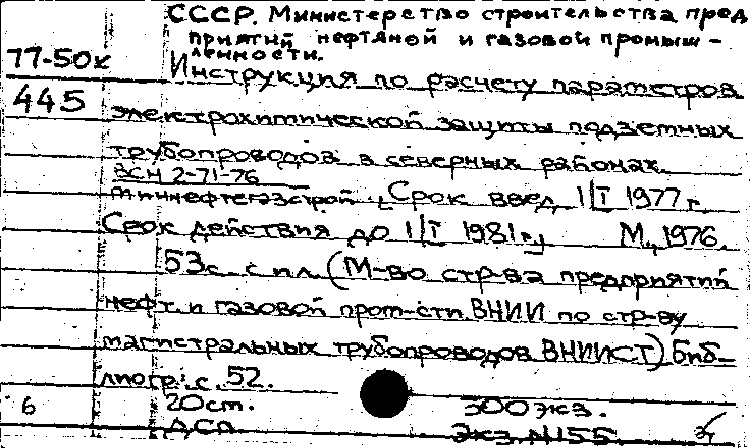 СССР. Министерство строительства пред
приятий нефтяной и газовой промыш-
ленности.
77-50к
Инструкция по расчету параметров
445
электрохимической защиты подземных
трубопроводов в северных районах.
ВСН 2-71-76
Миннефтегазстрой. Срок введ. 1/I 1977 г.
Срок действия до 1/I 1981 г. М., 1976.
53 с. с ил. (М-во стр-ва предприятий
нефт. и газовой пром-сти. ВНИИ по стр-ву
магистральных трубопроводов ВНИИСТ) Биб-
лиогр.: с. 52.
6 20 см. 500 экз.
ДСП. Экз. №155